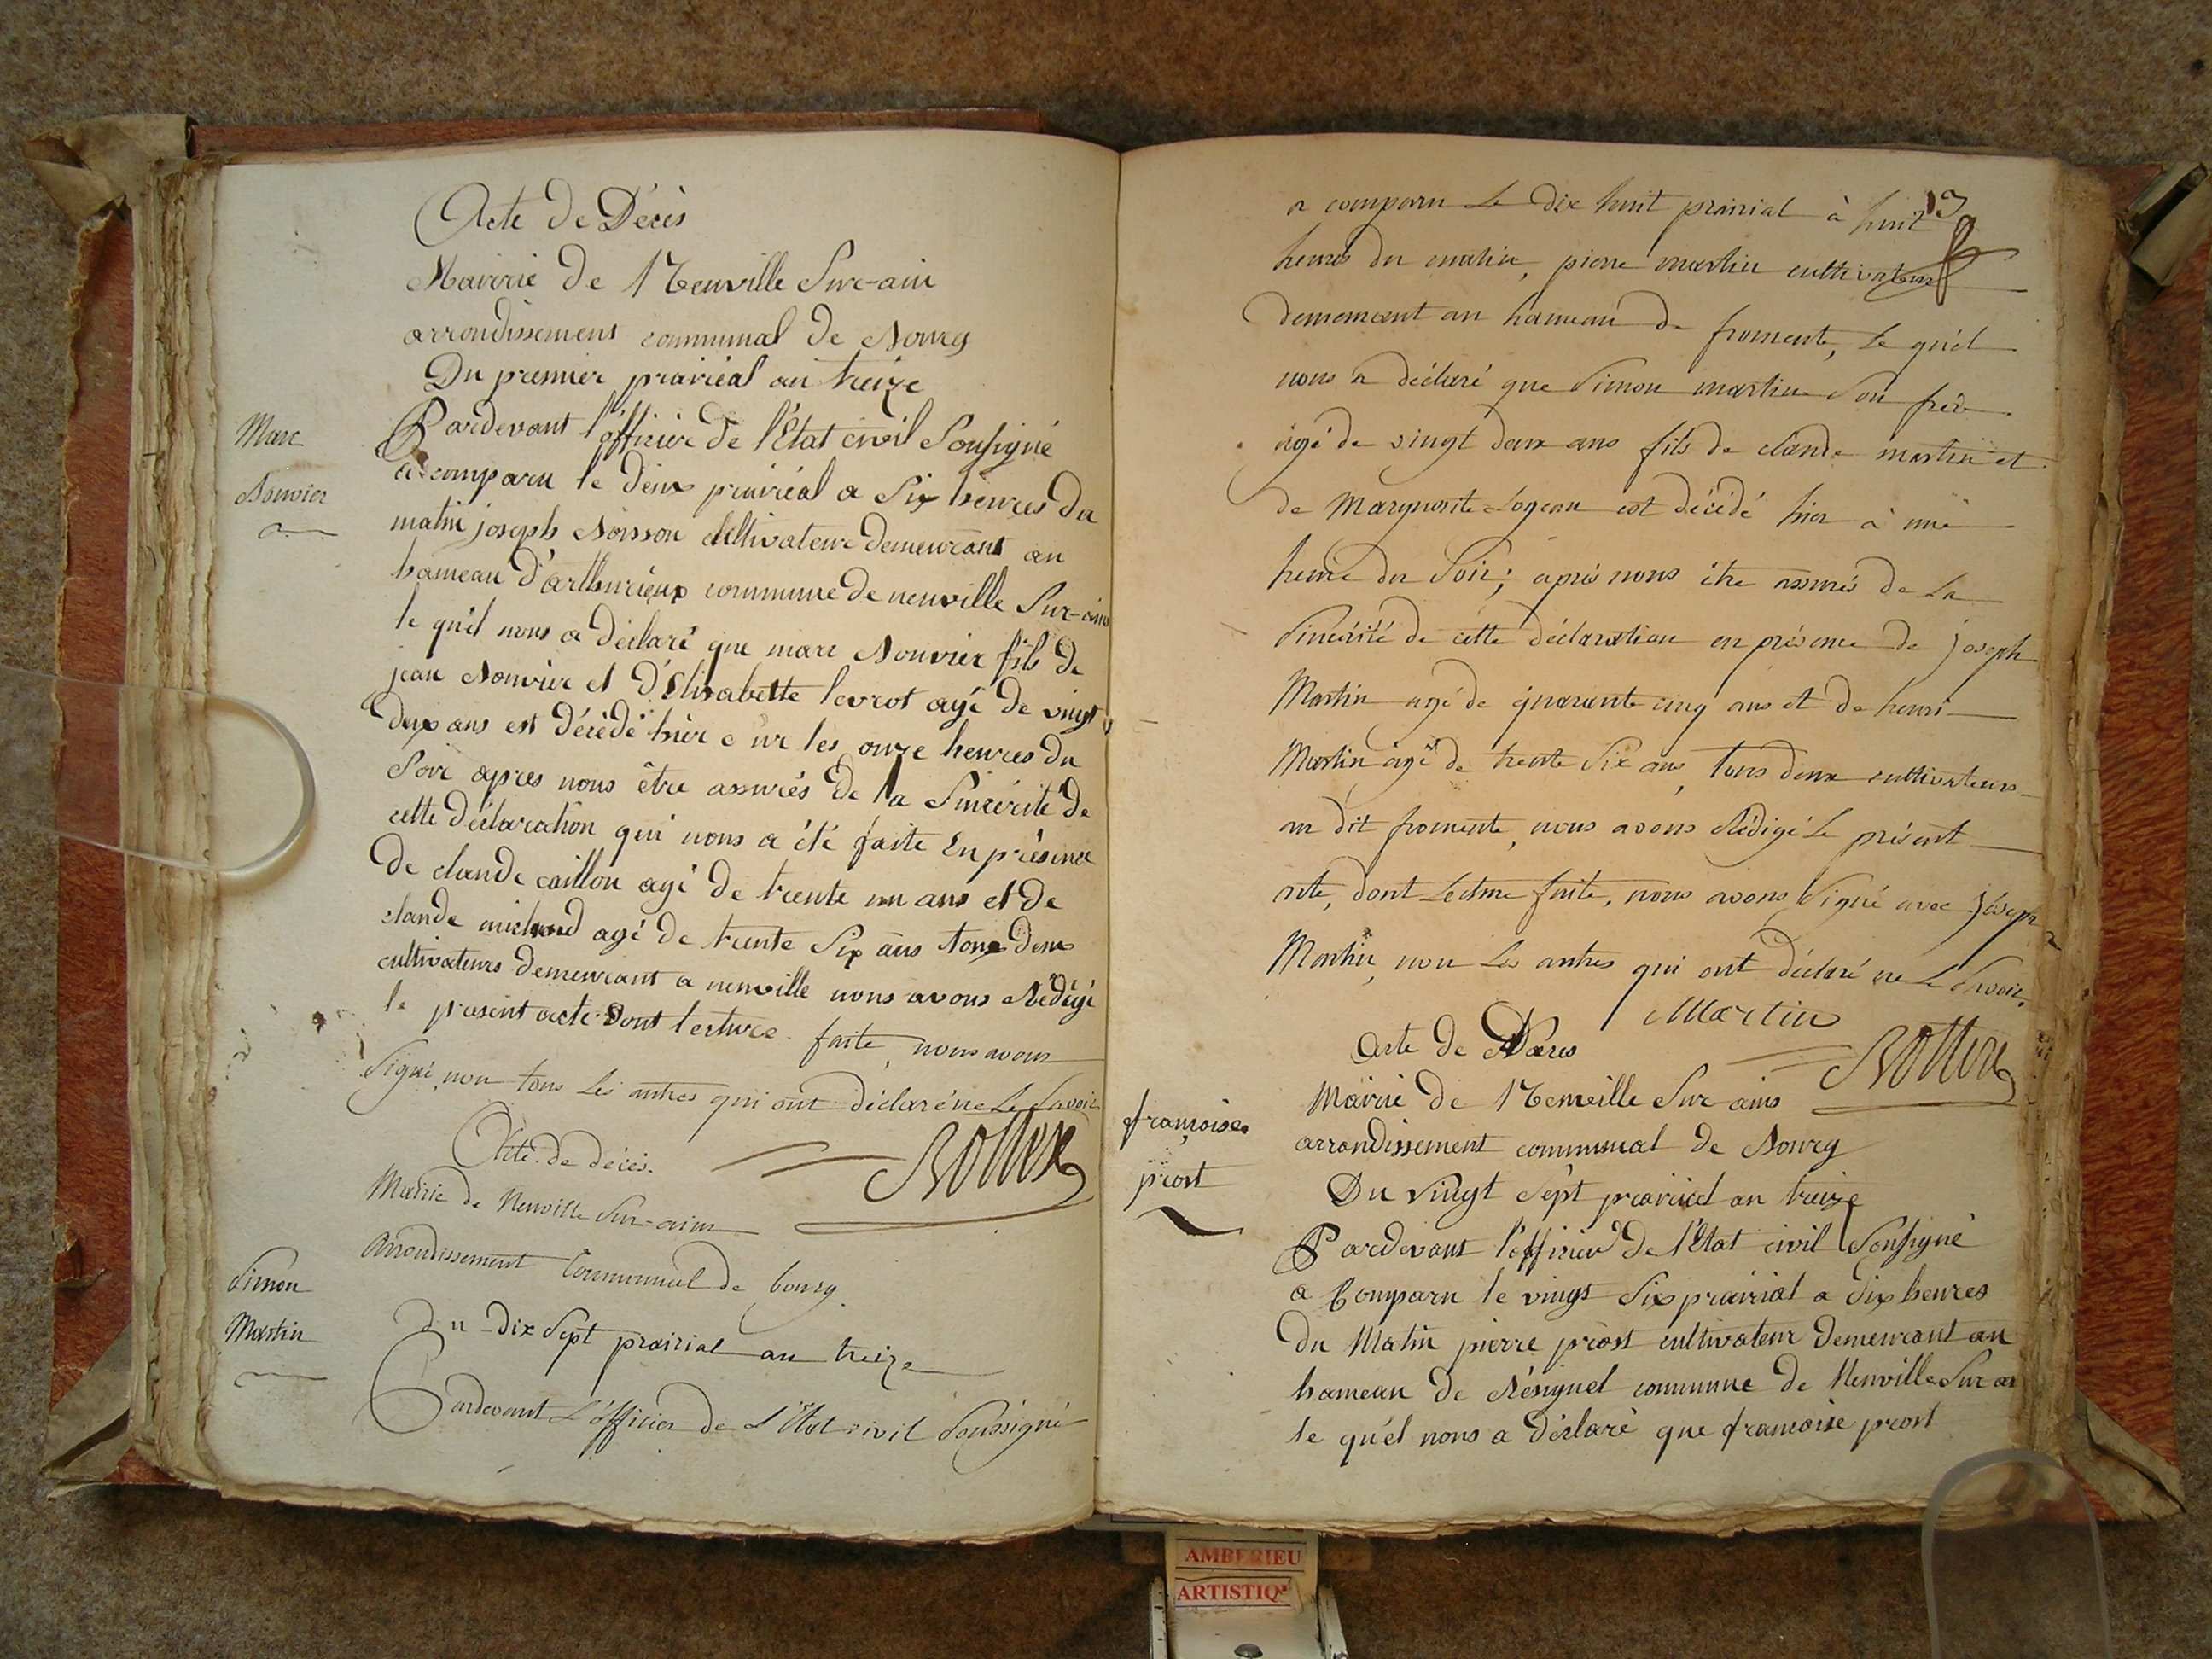 Acte de Décès
Mairie de Neuville Sur-ain
arrondissement communal de Bourg
Du premier prairéal an treize
Marc
Bouvier
Pardevant l'officier de l'État civil Sousigné
a comparu le deux prairéal a Six heures du
matin joseph Boisson Cultivateur demeurant au
hameau d'arthurieux commune de neuville Sur-ain
le quel nous a déclaré que marc Bouvier fils de
jean Bouvier et d'Elisabette levrot agé de vingt
deux ans est décédé hier sur les onze heures du
Soir apres nous être assurés de la Sincérité de
cette déclaration qui nous a été faite En présence
de claude caillon agé de trente un ans et de
claude michaud agé de trente Six ans tous deux
cultivateurs demeurant a neuville nous avons Rédigé
le present acte Dont lecture faite, nous avons
Signé, non tous Les autres qui ont déclaré ne Le Savoir
Acte de décès.
Mairie de Neuville Sur-ain
Arrondissement Communal de bourg.
Simon
Martin
Du dix Sept prairial an treize
Pardevant L'officier de L'État civil Soussigné
13
a comparu Le dix huit prairial à huit
heures du matin, pierre martin cultivateur
demeurant au hameau de fromente, Le quel
nous a déclaré que Simon martin Son frere
âgé de vingt deux ans fils de claude martin et
de Marguerite Logeau est décédé hier à une
heure du Soir; après nous être assurés de La
Sincérité de cette déclaration en présence de joseph
Martin agé de quarante cinq ans et de henri
Martin âgé de trente Six ans, tous deux cultivateurs
au dit fromente, nous avons Rédigé Le présent
acte, dont Lecture faite, nous avons Signé avec joseph
Martin, non Les autres qui ont déclaré ne Le Savoir.
Martin
Acte de Déces
Mairie de Neuville Sur ain
arrondissement communal de Bourg
françoise
prost
Du vingt Sept prairial an treize
Pardevant l'officier de l'État civil Sousigné
a Comparu le vingt Six prairial a Dix heures
du Matin pierre prost cultivateur demeurant au
hameau de Résignel commune de Neuville Sur ain
le quel nous a déclaré que francoise prost
AMBERIEU